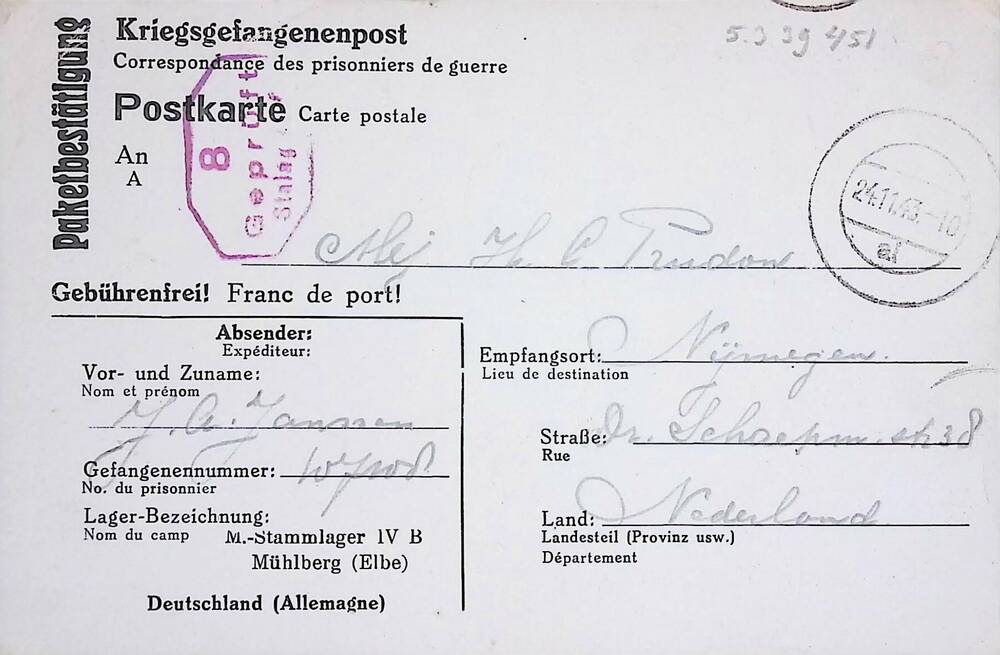 Paketbestätigung
Kriegsgefangenenpost
Correspondance des prisonniers de guerre
5.3 39 451
Postkarte Carte postale
An
A
8
Geprüft
Stalag
24.11.43.-10
Mej H. C Trudon
Gebührenfrei! Franc de port!
Absender:
Expéditeur:
Vor- und Zuname:
Nom et prénom
J. A. Janssen
Gefangenennummer:
No. du prisonnier
Lager-Bezeichnung:
Nom du camp
M.-Stammlager IV B
Mühlberg (Elbe)
Deutschland (Allemagne)
Empfangsort: Nijmegen.
Lieu de destination
Straße: Dr. Schaepm. str 38
Rue
Land: Nederland
Landesteil (Provinz usw.)
Département